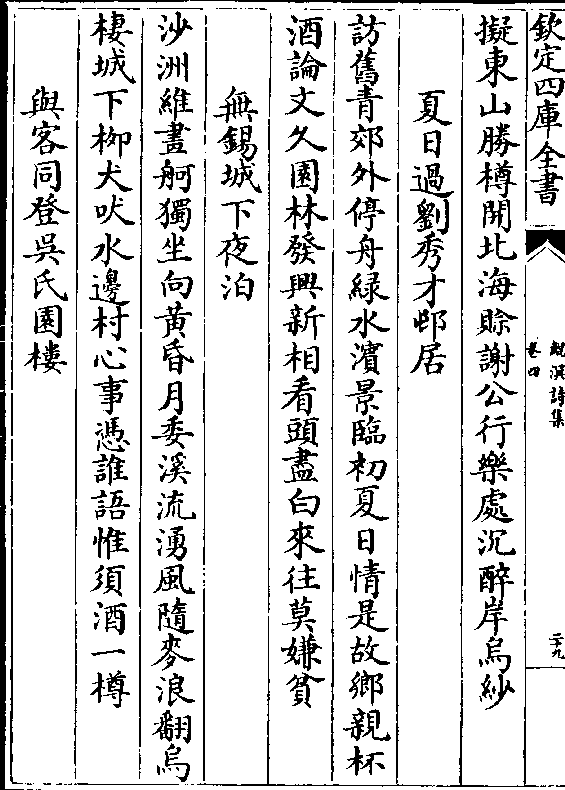 欽定四庫全書
覼溟詩集
卷四
二十九
擬東山勝樽開北海賒謝公行樂處沉醉岸烏紗
夏日過劉秀才邨居
訪舊青郊外停舟緑水濱景臨初夏日情是故鄉親杯
酒論文久園林發興新相看頭盡白來往莫嫌貧
無錫城下夜泊
沙洲維畫舸獨坐向黃昏月委溪流湧風隨麥浪翻烏
棲城下柳犬吠水邊村心事憑誰語惟須酒一樽
與客同登吳氏園樓